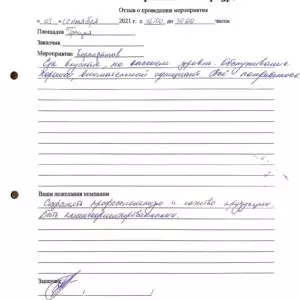 Отзыв о проведении мероприятия
« 03 » сентября 2021 г. с 16:00 до 20:00 Число
Площадка Греция
Заказчик
Мероприятие Корпоратив
Еда вкусная, на высшем уровне. Обслуживание
хорошее, внимательный официант. Всё понравилось
Ваши пожелания компании
Сохранять профессионализм и качество продукции.
Быть клиентоориентированными.
Заказчик